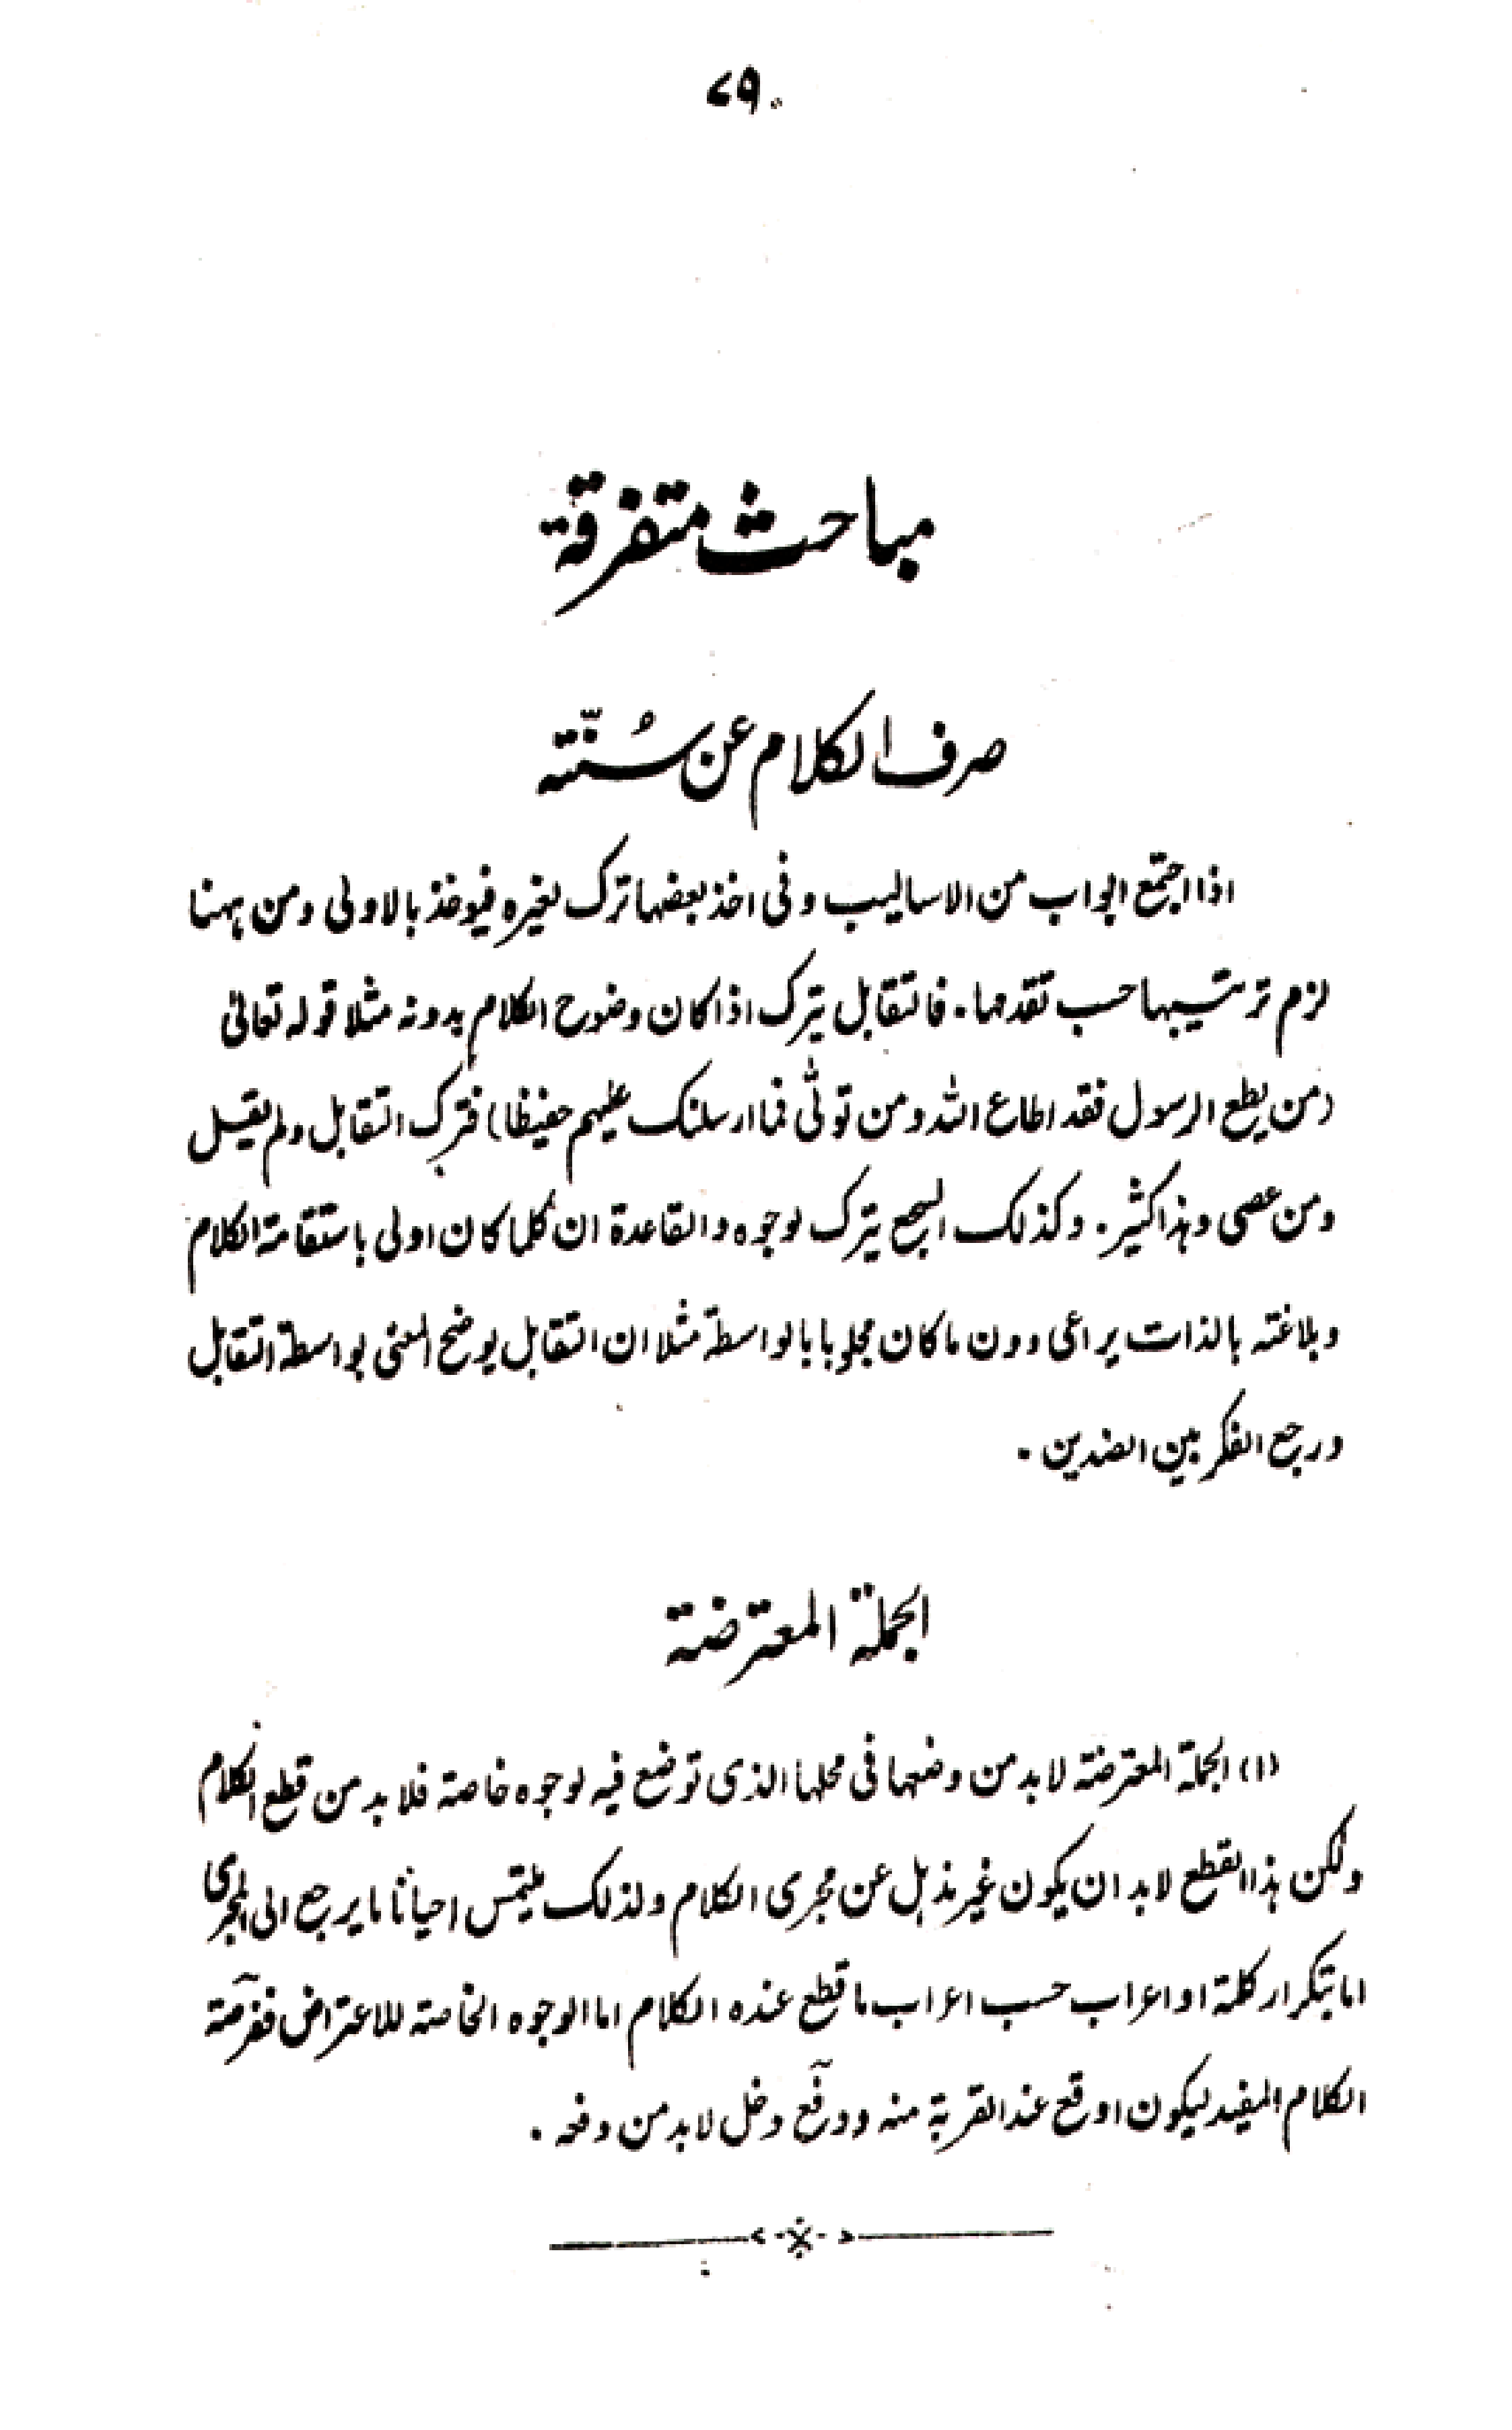 ۷۹
مباحث متفرقة
صرف الكلام عن سُنّته
اذا اجتمع ابواب من الاساليب و فى اخذ بعضها ترك لغيره فيوخذ بالاولى ومن ههنا
لزم ترتيبها حسب تقدمها. فالتقابل يترك اذا كان وضوح الكلام بدونه مثلا قوله تعالىٰ
(من يطع الرسول فقد اطاع الله ومن تولّٰى فما ارسلنك عليهم حفيظا) فترك التقابل ولم يقيل
ومن عصى وهذا كثير. وكذلك السجع يترك لوجوه والقاعدة ان كلما كان اولى باستقامة الكلام
وبلاغته بالذات يراعى دون ما كان مجلوبا بالواسطة مثلا ان التقابل يوضح المعنى بواسطة التقابل
ورجع الفكر بين الضدين.
الجملة المعترضة
(۱) الجملة المعترضة لابد من وضعها فى محلها الذى توضع فيه لوجوه خاصة فلا بد من قطع الكلام
ولكن هذا القطع لابد ان يكون غير مذهل عن مجرى الكلام ولذلك يلتمس احيانا ما يرجع الى المجرى
اما بتكرار كلمة او اعراب حسب اعراب ما قطع عنده الكلام اما الوجوه الخاصة للاعتراض ففرصة
الكلام المفيد ليكون اوقع عند القربة منه ودفع دخل لابد من دفعه.